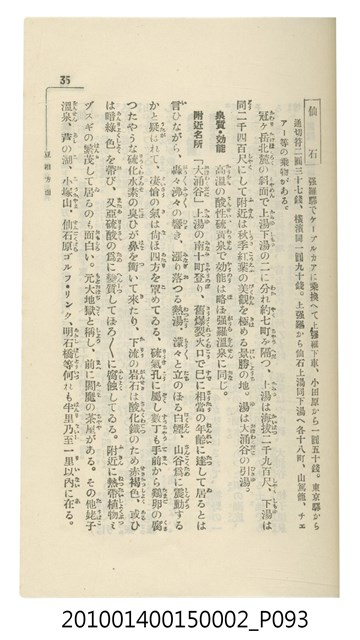 仙石
强羅驛でケーブルカアに乘換へて上强羅下車、小田原から一圓五十錢。東京驛から
通切符二圓三十七錢、橫濱同一圓九十錢。上强羅から仙石上湯同下湯へ各十八町、山駕籠、チエ
アー等の乘物がある。
冠ケ岳北麓の斜面で上湯下湯の二に分れ約七町を隔つ、上湯は海拔二千九百尺、下湯は
同二千四百尺にして附近は秋季紅葉の美觀を極める景勝の地。湯は大涌谷の引湯。
泉質・効能 高溫の酸性硫黃泉で効能は略ほ强羅溫泉に同じ。
附近名所 「大涌谷」上湯の南十町登り、舊爆裂火口で已に相當の年齡に達して居るとは
言ひながら、轟々沸々の響き、漲り落つる熱湯、濛々と立のぼる白煙、山谷爲に震動する
かと疑はれて、凄愴の氣は尙ほ四方を罩めてゐる、硫氣孔に屬し數丁も手前から鷄卵の腐
つたやうな硫化水素の臭ひが鼻を衝いて來たり、下流の岩石は酸化鐵のため赤褐色、或ひ
は暗綠色を帶び、又亞硫酸の爲に變質してぼろ〱に腐蝕してゐる。附近に熱帶植物ミ
ヅスギの繁茂して居るのも面白い。元大地獄と稱し、前に閻魔の茶屋がある。その他姥子
溫泉、芦の湖、小塚山、仙石原ゴルフ・リンク、明石橋等何れも半里乃至一里以內に在る。
35
201001400150002_P093